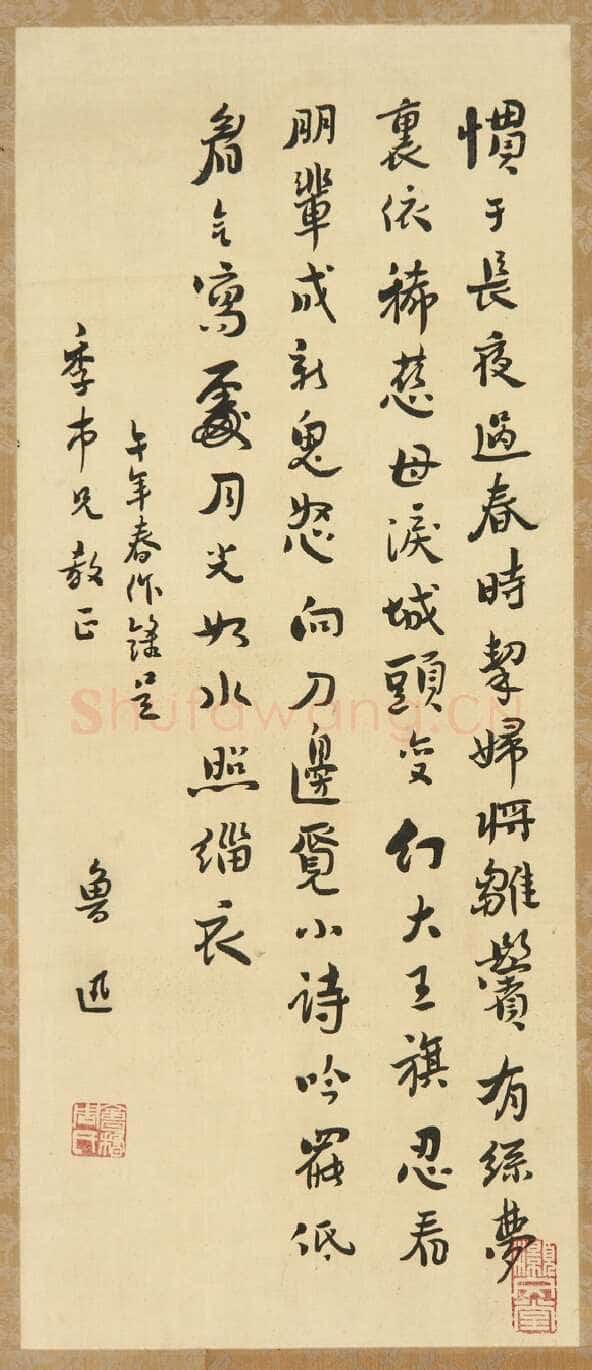 慣于長夜過春時挈婦將雛鬢有絲夢
裏依稀慈母淚城頭變幻大王旗忍看
朋輩成新鬼怒向刀邊覓小詩吟罷低
眉無寫處月光如水照緇衣
午年春作錄呈
季市兄教正
魯迅
Shufawang.CN